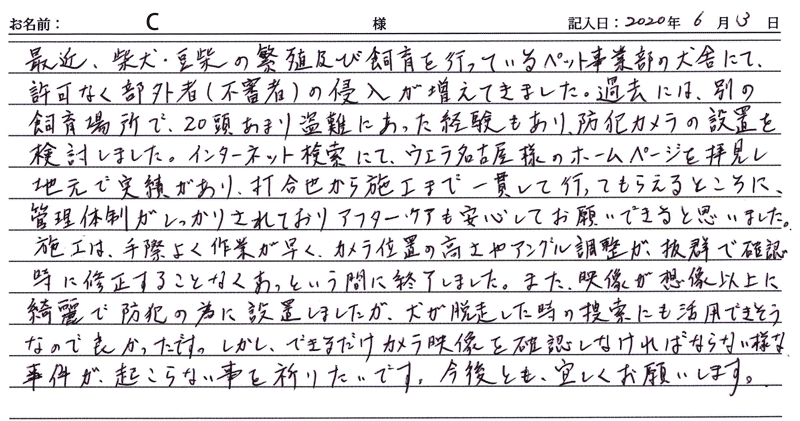 お名前: C 様 記入日:2020年 6月 13日
最近、柴犬・豆柴の繁殖及び飼育を行っているペット事業部の犬舎にて、
許可なく部外者(不審者)の侵入が増えてきました。過去には、別の
飼育場所で、20頭あまり盗難にあった経験もあり、防犯カメラの設置を
検討しました。インターネット検索にて、ウエラ名古屋様のホームページを拝見し
地元で実績があり、打合せから施工まで一貫して行ってもらえるところに、
管理体制がしっかりされておりアフターケアも安心してお願いできると思いました。
施工は、手際よく作業が早く、カメラ位置の高さやアングル調整が、抜群で確認
時に修正することなくあっという間に終了しました。また、映像が想像以上に
綺麗で防犯の為に設置しましたが、犬が脱走した時の捜索にも活用できそう
なので良かったです。しかし、できるだけカメラ映像を確認しなければならない様な
事件が、起こらない事を祈りたいです。今後とも、宜しくお願いします。